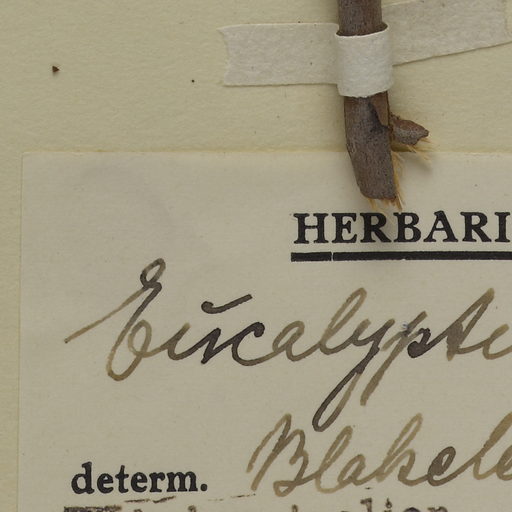 HERBARI
Eucalyptu
determ. Blakele